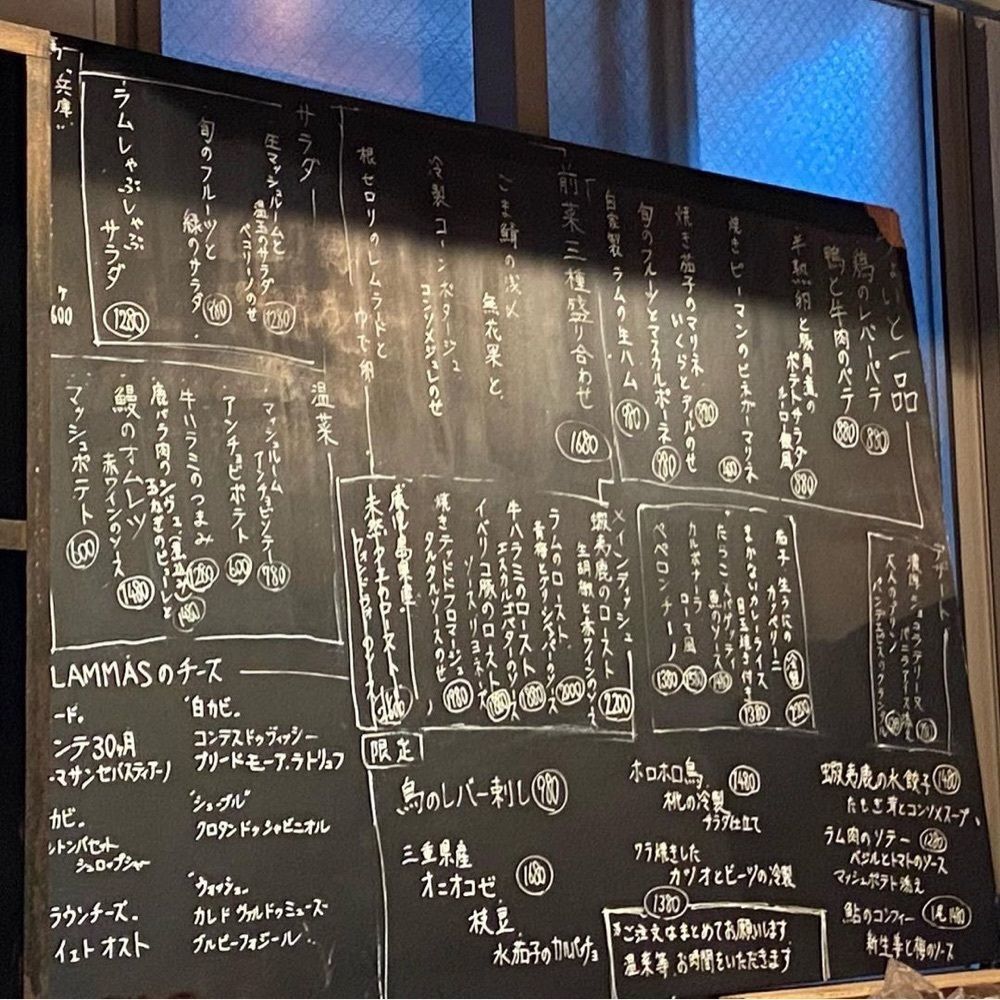 一品
鶏のレバーパテ 880
鴨と牛肉のパテ 880
半熟卵と豚角煮の
ポテトサラダ
ルーロー飯風 880
焼きピーマンのビネガーマリネ 600
焼き茄子のマリネ
いくらとディルのせ
旬のフルーツとマスカルポーネ 980
自家製ラムの生ハム 980
前菜三種盛り合わせ 1680
ごま鯖の浅〆
無花果と
冷製コーンポタージュ
コンソメジュレのせ
根セロリのレムラードと
ゆで卵
サラダ
生マッシュルームと
温玉のサラダ
ペコリーノのせ 1280
旬のフルーツと
緑のサラダ 980
ラムしゃぶしゃぶ
サラダ 1280
兵庫
600
温菜
マッシュルーム
アンチョビソテー 780
アンチョビポテト 600
牛ハラミのつまみ 1280
鰻のオムレツ
赤ワインのソース 1480
マッシュポテト 600
メインディッシュ
蝦夷鹿のロースト
生胡椒と赤ワインのソース 2200
ラムのロースト 2000
牛ハラミのロースト
エスカルゴバターのソース 1880
イベリコ豚のロースト
ソースリヨネーズ 1880
焼きテッドドフロマージュ
タルタルソースのせ 1980
鹿児島県産
生うにの
カッペリーニ
冷製 2200
まかないカレーライス
目玉焼き付き 1380
たらこスパゲッティ
魚のソース 1480
カルボナーラ
ローマ風 1580
ペペロンチーノ 1380
デザート
濃厚ショコラテリーヌ
バニラアイス添え
大人のプリン
LAMMASのチーズ
ード。
ンテ30ヶ月
マサンセバスティアーノ
カビ。
シュロップシャー
ラウンチーズ。
イェトオスト
"白カビ。
コンテスドゥヴィッシー
ブリードモーア.ラトリュフ
"シェーブル"
クロタンドゥシャビニオル
"ウォッシュ。
カレドヴァルドゥミューズ
ブルビーフォジール
限定
鳥のレバー刺し 980
三重県産
オニオコゼ 1680
枝豆
水茄子のカルパッチョ
ホロホロ鳥 1480
桃の冷製
サラダ仕立て
ワラ焼きした
カツオとビーツの冷製
1380
※ご注文はまとめてお願いします
温菜等お時間をいただきます
蝦夷鹿の水餃子 1480
たもぎ茸とコンソメスープ
ラム肉のソテー 1280
バジルとトマトのソース
マッシュポテト添え
鮎のコンフィー 1尾1480
新生姜と梅のソース